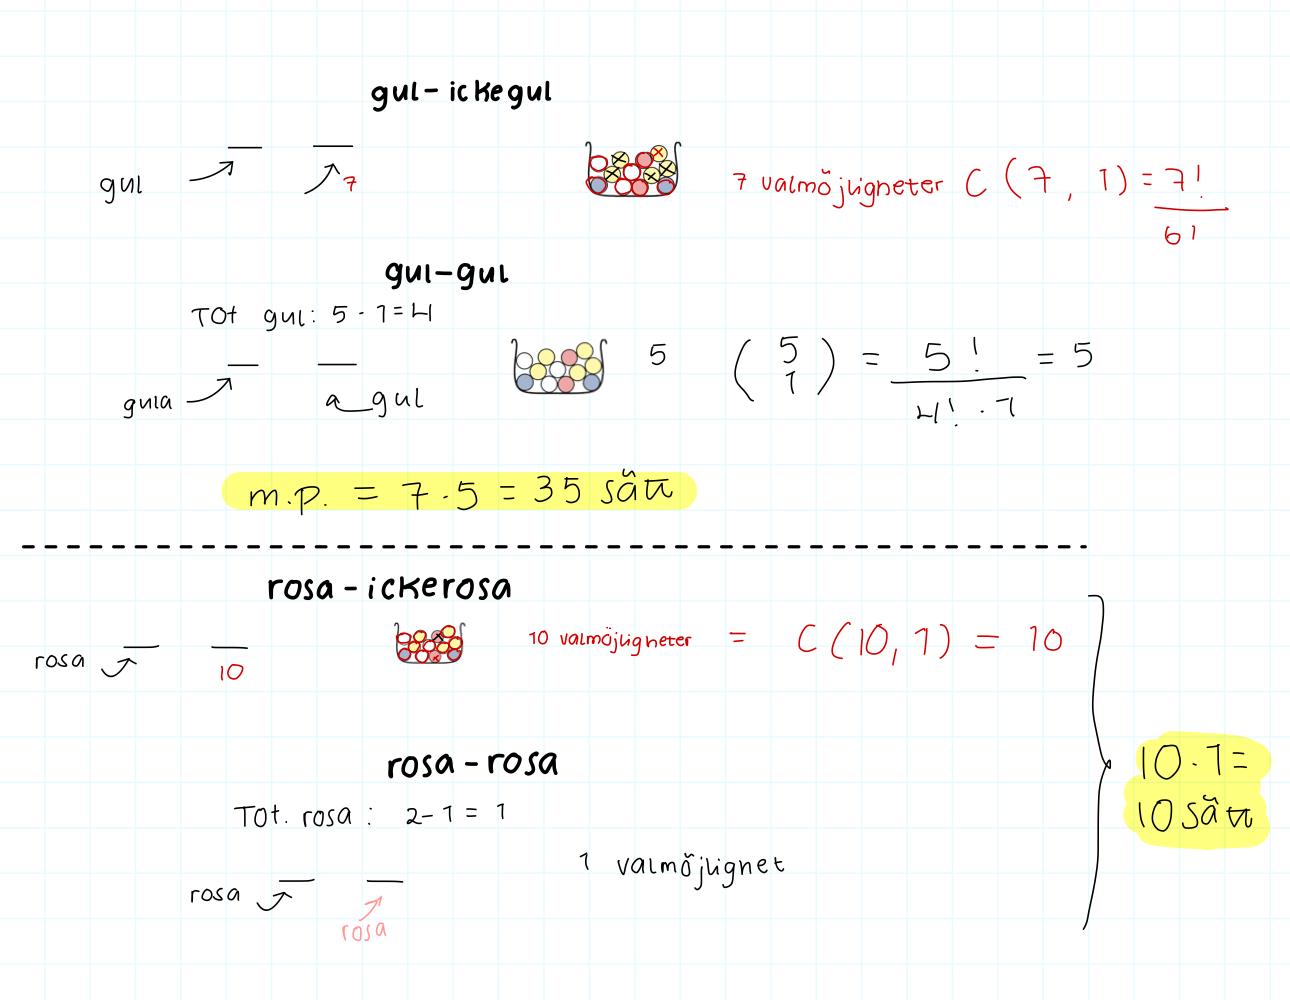 gul-ickegul
gul
7
7 valmöjligheter C(7, 1) = 7!
6!
gul-gul
Tot gul: 5 - 1 = 4
gula
a gul
5
(5 1) = 5! / 4! · 1 = 5
m.p. = 7·5 = 35 sätt
rosa-ickerosa
rosa
10
10 valmöjligheter = C(10,1) = 10
rosa-rosa
Tot. rosa: 2-1 = 1
1 valmöjlighet
rosa
rosa
10·1=
10 sätt